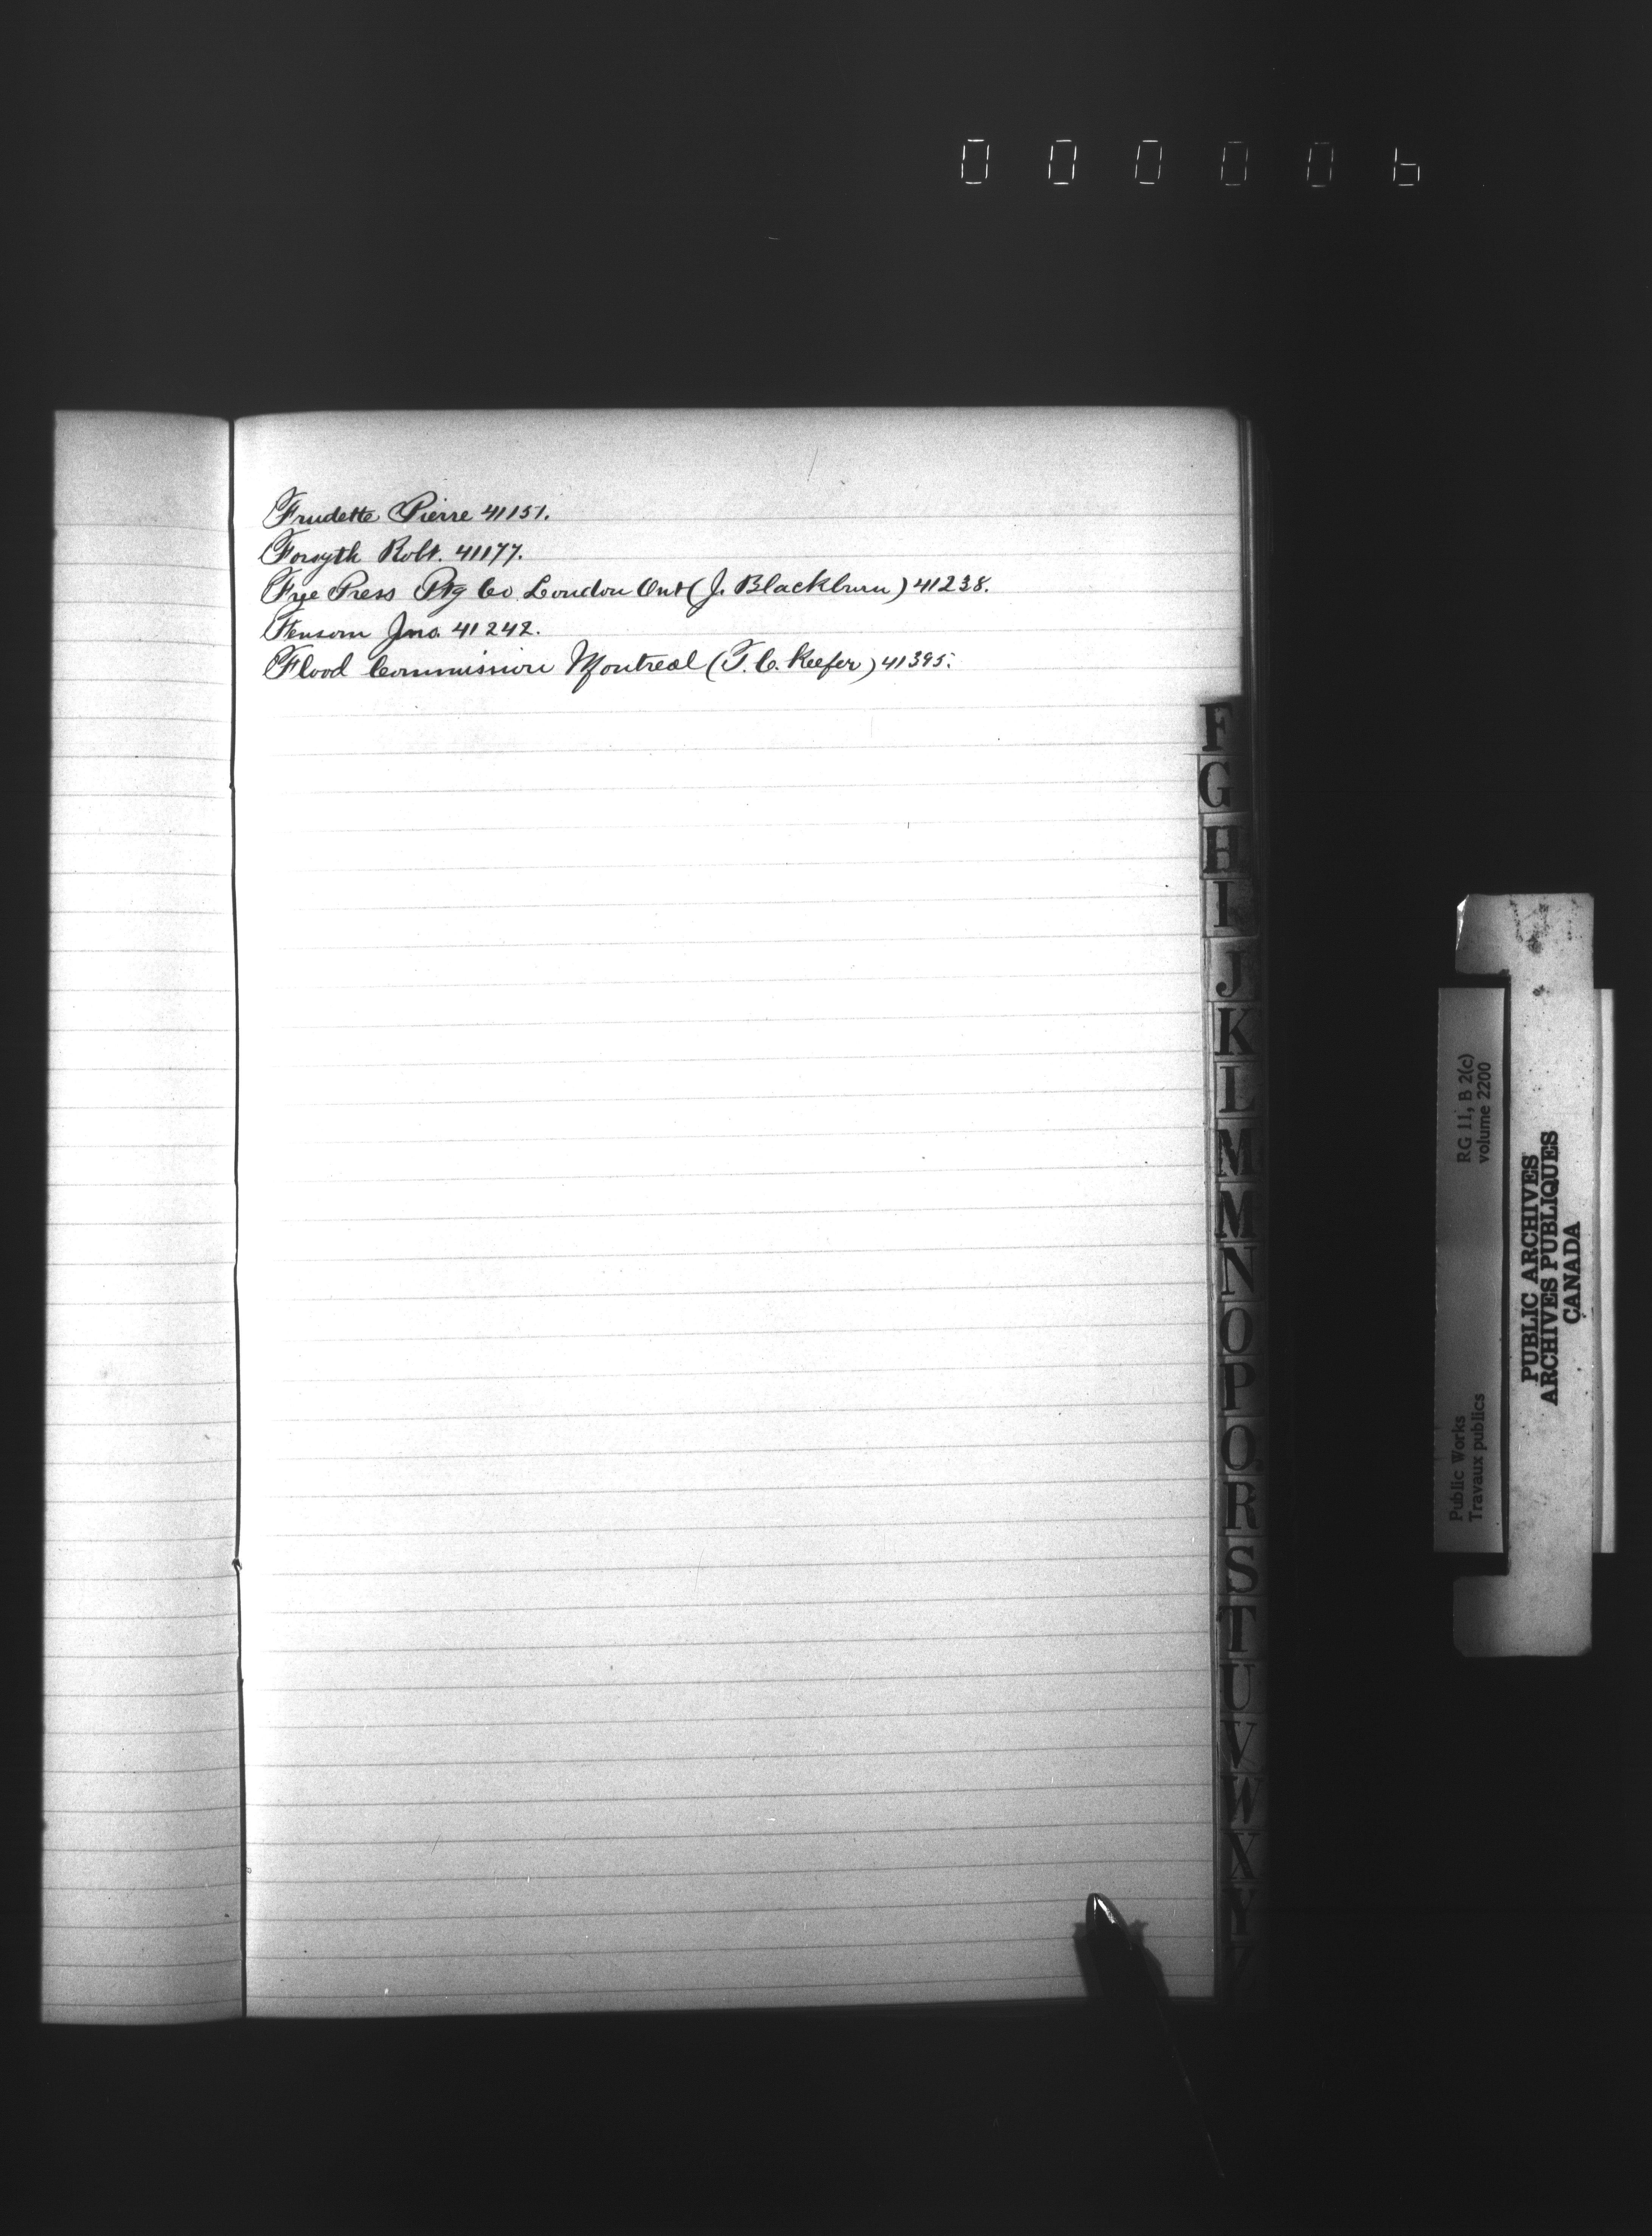 000006
Frudette Pierre 41151.
Forsyth Robt. 41177.
Free Press Ptg Co London Ont (J. Blackburn) 41238.
Fensom Jno. 41242.
Flood Commission Montreal (T. C. Keefer) 41395.
F
G
H
I
J
K
L
M
M
N
O
P
Q
R
S
T
U
V
W
X
Y
Z
RG 11, B 2(c)
volume 2200
Public Works
Travaux publics
PUBLIC ARCHIVES
ARCHIVES PUBLIQUES
CANADA